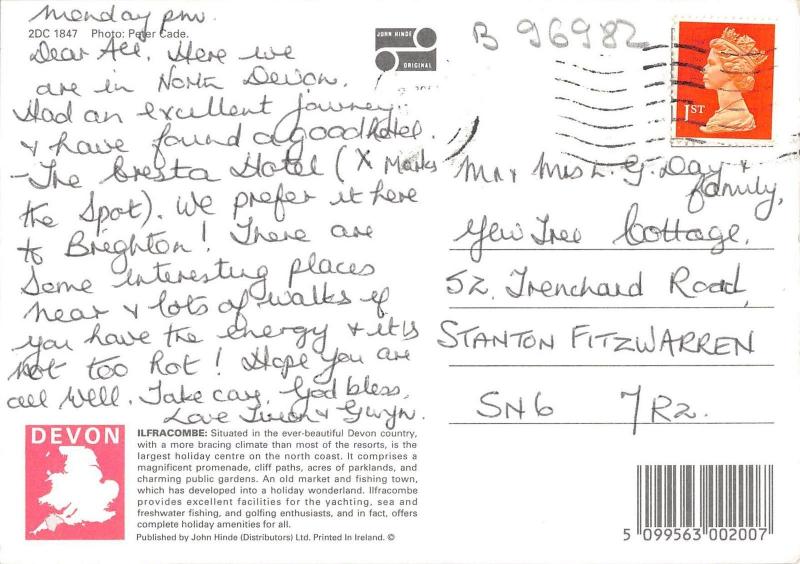 Monday pm.
2DC 1847 Photo: Peter Cade.
Dear All, Here we
are in North Devon.
Had an excellent journey
& have found a good hotel.
- The Cresta Hotel (X Marks
the Spot). We prefer it here
to Brighton! There are
Some interesting places
near & lots of walks if
you have the energy & it's
not too hot! Hope you are
all well. Take care, God bless,
Love & Gwyn.
JOHN HINDE
ORIGINAL
B 96982
1ST
Mr & Mrs L. G. Day &
family,
Yew Tree Cottage,
52, Trenchard Road,
STANTON FITZWARREN
SN6 7RZ.
DEVON
ILFRACOMBE: Situated in the ever-beautiful Devon country,
with a more bracing climate than most of the resorts, is the
largest holiday centre on the north coast. It comprises a
magnificent promenade, cliff paths, acres of parklands, and
charming public gardens. An old market and fishing town,
which has developed into a holiday wonderland. Ilfracombe
provides excellent facilities for the yachting, sea and
freshwater fishing, and golfing enthusiasts, and in fact, offers
complete holiday amenities for all.
Published by John Hinde (Distributors) Ltd. Printed In Ireland. ©
5 099563 002007